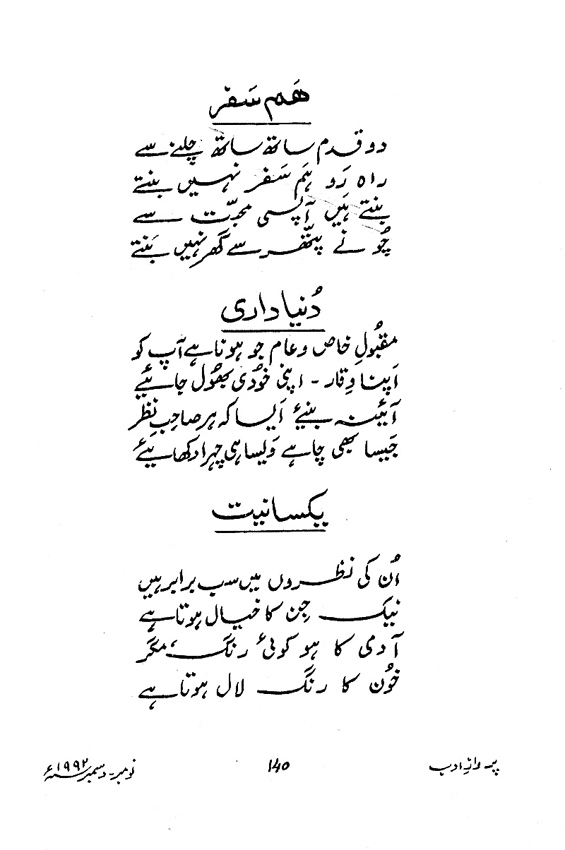 ہم سفر
دو قدم ساتھ ساتھ چلنے سے
راہ رَو ہم سَفر نہیں بنتے
بنتے ہیں آپسی محبّت سے
چُونے پتّھر سے گھر نہیں بَنتے
دُنیا داری
مقبُولِ خاص و عام جو ہونا ہے آپ کو
اَپنا وقار - اپنی خودی بھُول جائیے
آئینہ بنیئے اَیسا کہ ہر صاحبِ نظر
جَیسا بھی چاہے وَیسا ہی چہرا دکھایئے
یکسانیت
اُن کی نظروں میں سب برابر ہیں
نیک جِن کا خیال ہوتا ہے
آدمی کا ہو کوئی رنگ، مگر
خُون کا رنگ لال ہوتا ہے
پروازِ ادب
۱۴۵
نومبر۔دسمبر ۱۹۹۲ء